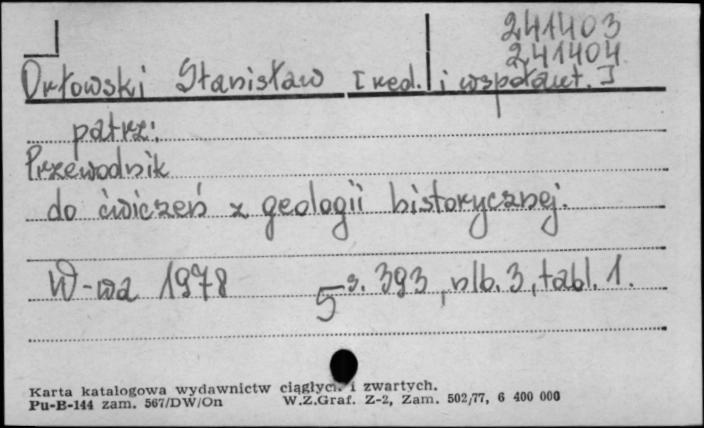 241403
241404
Orłowski Stanisław [red. i współaut.]
patrz:
Przewodnik
do ćwiczeń z geologii historycznej.
W-wa 1978 s. 393, nlb. 3, tabl. 1.
5
Karta katalogowa wydawnictw ciągłych i zwartych.
Pu-B-144 zam. 567/DW/On W.Z.Graf. Z-2, Zam. 502/77, 6 400 000